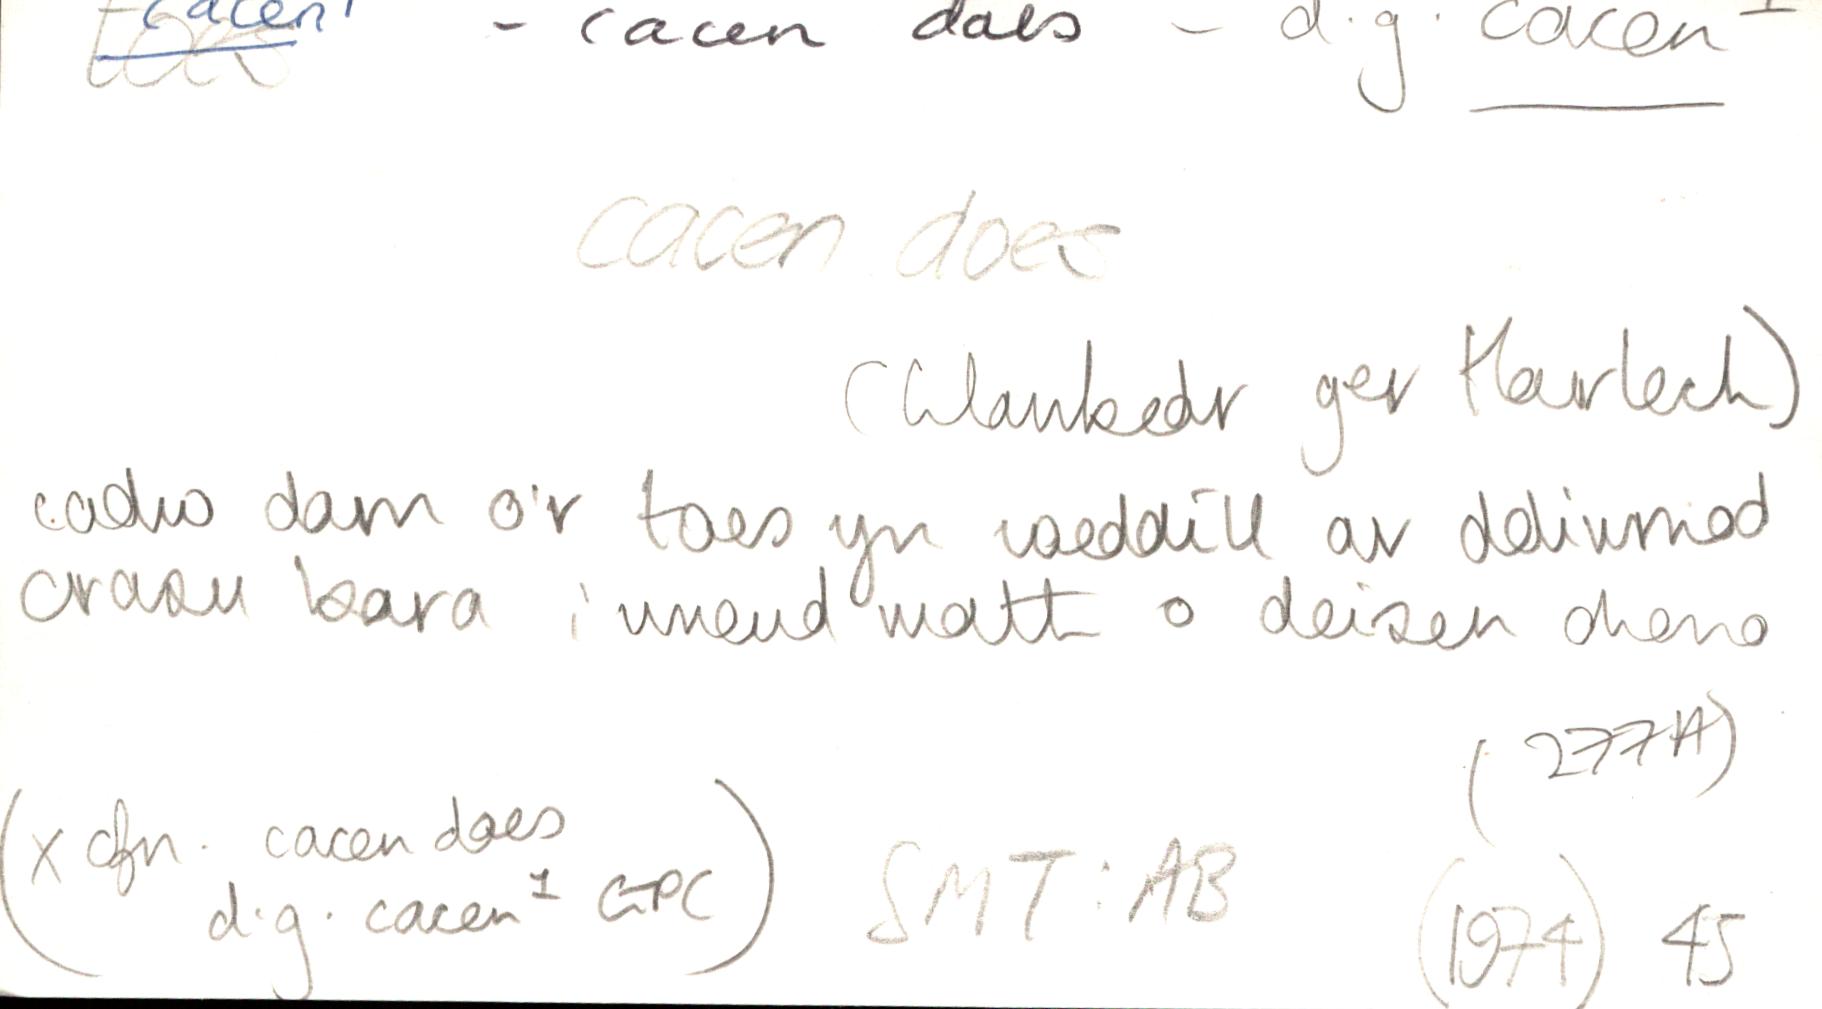 cacen¹ - cacen does - d.g. cacen¹
toes
cacen does
(Llanbedr ger Harlech)
cadw darn o'r toes yn weddill ar ddiwrnod
crasu bara i wneud math o deisen ohono
(277A)
(x cfn. cacen does
d.g. cacen¹ GPC)
SMT:AB (1974) 45